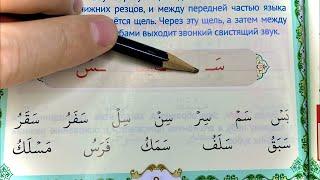 нижних резцов, и между передней частью языка
щель. Через эту щель, а затем между
выходит звонкий свистящий звук.
سَـ
بَسْ سَمْ سِرْ سِنْ سِلْ سَفَرُ سَقَرُ
سَبَقُ سَلَفُ سَمَكُ فَرَسُ مَسْلَكُ